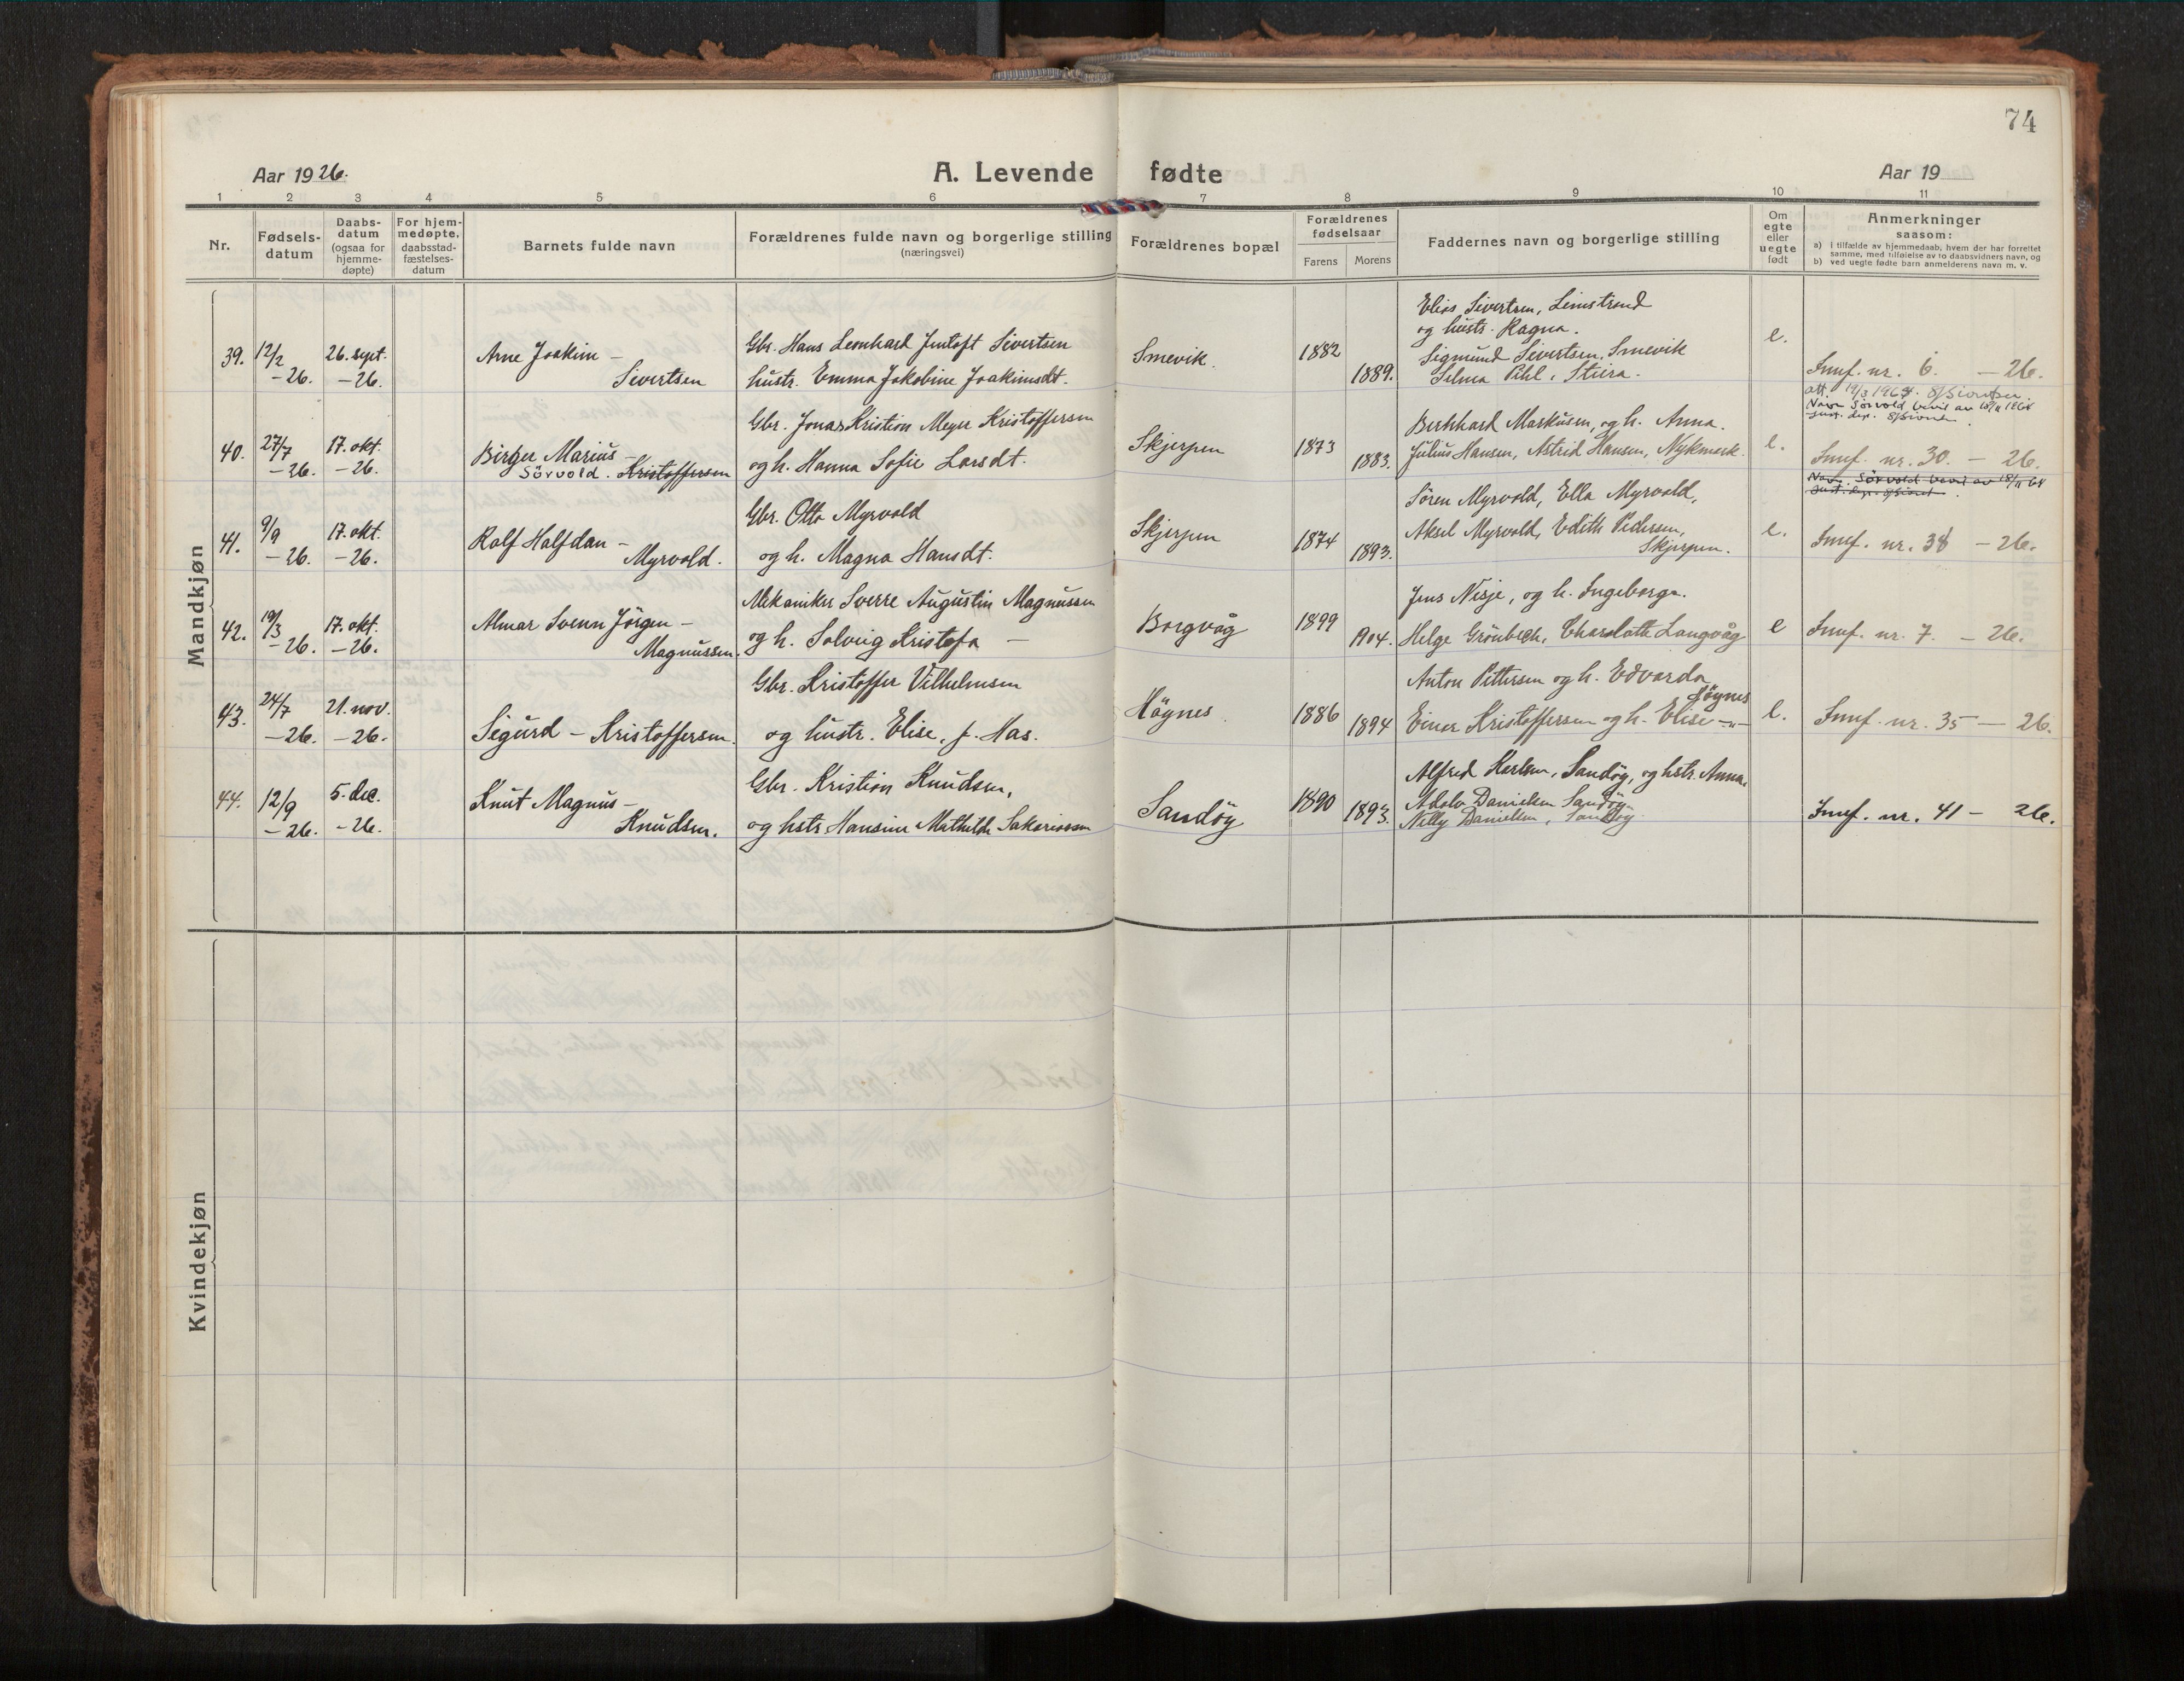 74
Aar 1926.
A. Levende fødte
Aar 19
1 2 3 4 5 6 7 8 9 10 11
Nr.
Fødsels-
datum
Daabs-
datum
(ogsaa for
hjemme-
døpte)
For hjem-
medøpte.
daabsstad-
fæstelses-
datum
Barnets fulde navn
Forældrenes fulde navn og borgerlige stilling
(næringsvei)
Forældrenes bopæl
Forældrenes
fødselsaar
Farens
Morens
Faddernes navn og borgerlige stilling
Om
egte
eller
uegte
født
Anmerkninger
saasom:
a) i tilfælde av hjemmedaab, hvem der har forrettet
samme, med tilføielse av to daabsvidners navn, og
b) ved uegte fødte barn anmelderens navn m. v.
Mandkjøn
39. 12/2 -26.
26. sept. -26.
Arne Joakim -
Sivertsen
Gbr. Hans Leonhard Jentoft Sivertsen
hustr. Emma Jakobine Joakimsdt.
Smevik.
1882
1889.
Elias Sivertsen, Leinstrand
og hustr. Ragna.
Sigmund Sivertsen, Smevik
Selma Pihl, Steira.
e.
Innf. nr. 6. - 26.
40. 27/7 -26.
17. okt. -26.
Birger Marius -
Sörvold. Kristoffersen
Gbr. Jonas Kristian Meyer Kristoffersen
og h. Hanna Sofie Larsdt.
Skjerpen
1873
1883.
Bernhard Markusen, og h. Anna.
Julius Hansen, Astrid Hansen, Nykmark.
e.
Navn Sörvold bevil av 18/11 1964
Innf. nr. 30. - 26.
Navn Sörvold bevil av 18/11 64
41. 9/9 -26.
17. okt. -26.
Ralf Halfdan -
Myrvold.
Gbr. Otto Myrvold
og h. Magna Hansdt.
Skjerpen
1874
1893.
Søren Myrvold, Ella Myrvold,
Aksel Myrvold, Edith Pedersen,
Skjerpen.
e.
Innf. nr. 38 - 26.
42. 19/3 -26.
17. okt. -26.
Almar Svenn Jörgen -
Magnussen.
Mekaniker Sverre Augustin Magnussen
og h. Solveig Kristofa -
Borgvåg
1899
1904.
Jens Nisje, og h. Ingeborg.
Helge Grönbech, Charlotte Langvåg
e
Innf. nr. 7. - 26.
43. 24/7 -26.
21. nov. -26.
Sigurd - Kristoffersen.
Gbr. Kristoffer Vilhelmsen
og hustr. Elise, f. Has.
Högnes.
1886
1894
Anton Pettersen og h. Edvarda,
Högnes
Einar Kristoffersen og h. Elise -"-
e.
Innf. nr. 35 - 26.
44. 12/9 -26.
5. dec. -26.
Knut Magnus -
Knudsen.
Gbr. Kristian Knudsen,
og hstr. Hansine Mathilde Sakariassen
Sandöy
1890
1893.
Alfred Karlsen, Sandöy, og hstr. Anna.
Adolv Danielsen Sandöy
Nelly Danielsen, Sandöy
Innf. nr. 41 - 26.
Kvindekjøn